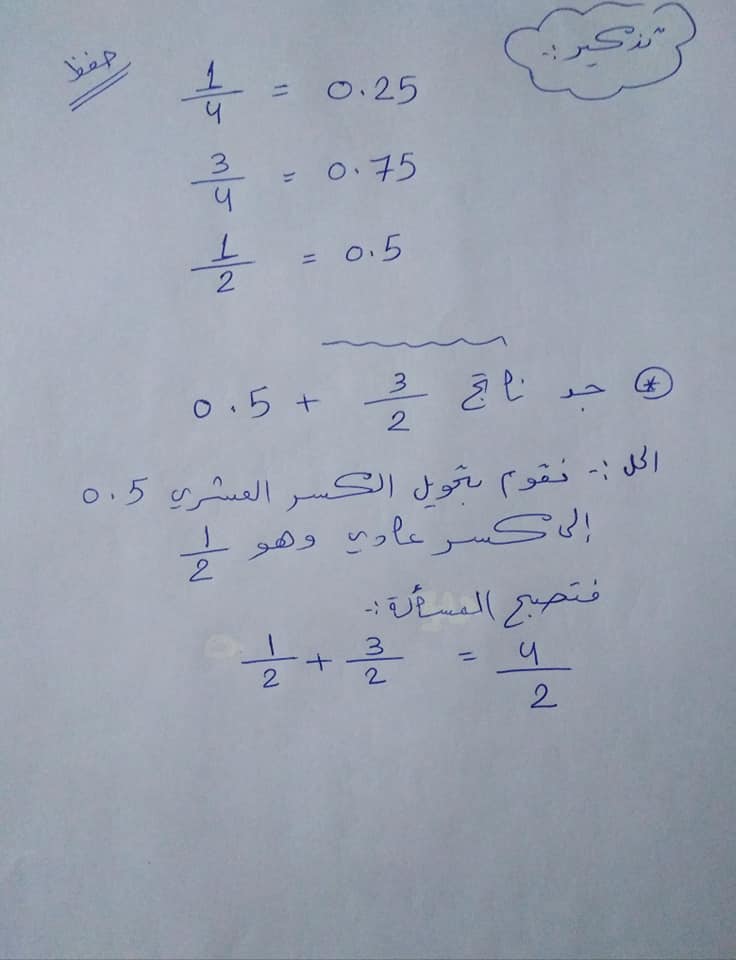 تذكير :-
حفظ
1/4 = 0.25
3/4 = 0.75
1/2 = 0.5
* جد ناتج 3/2 + 0.5
الحل :- نقوم بتحويل الكسر العشري 0.5
إلى كسر عادي وهو 1/2
فتصبح المسألة :-
1/2 + 3/2 = 4/2